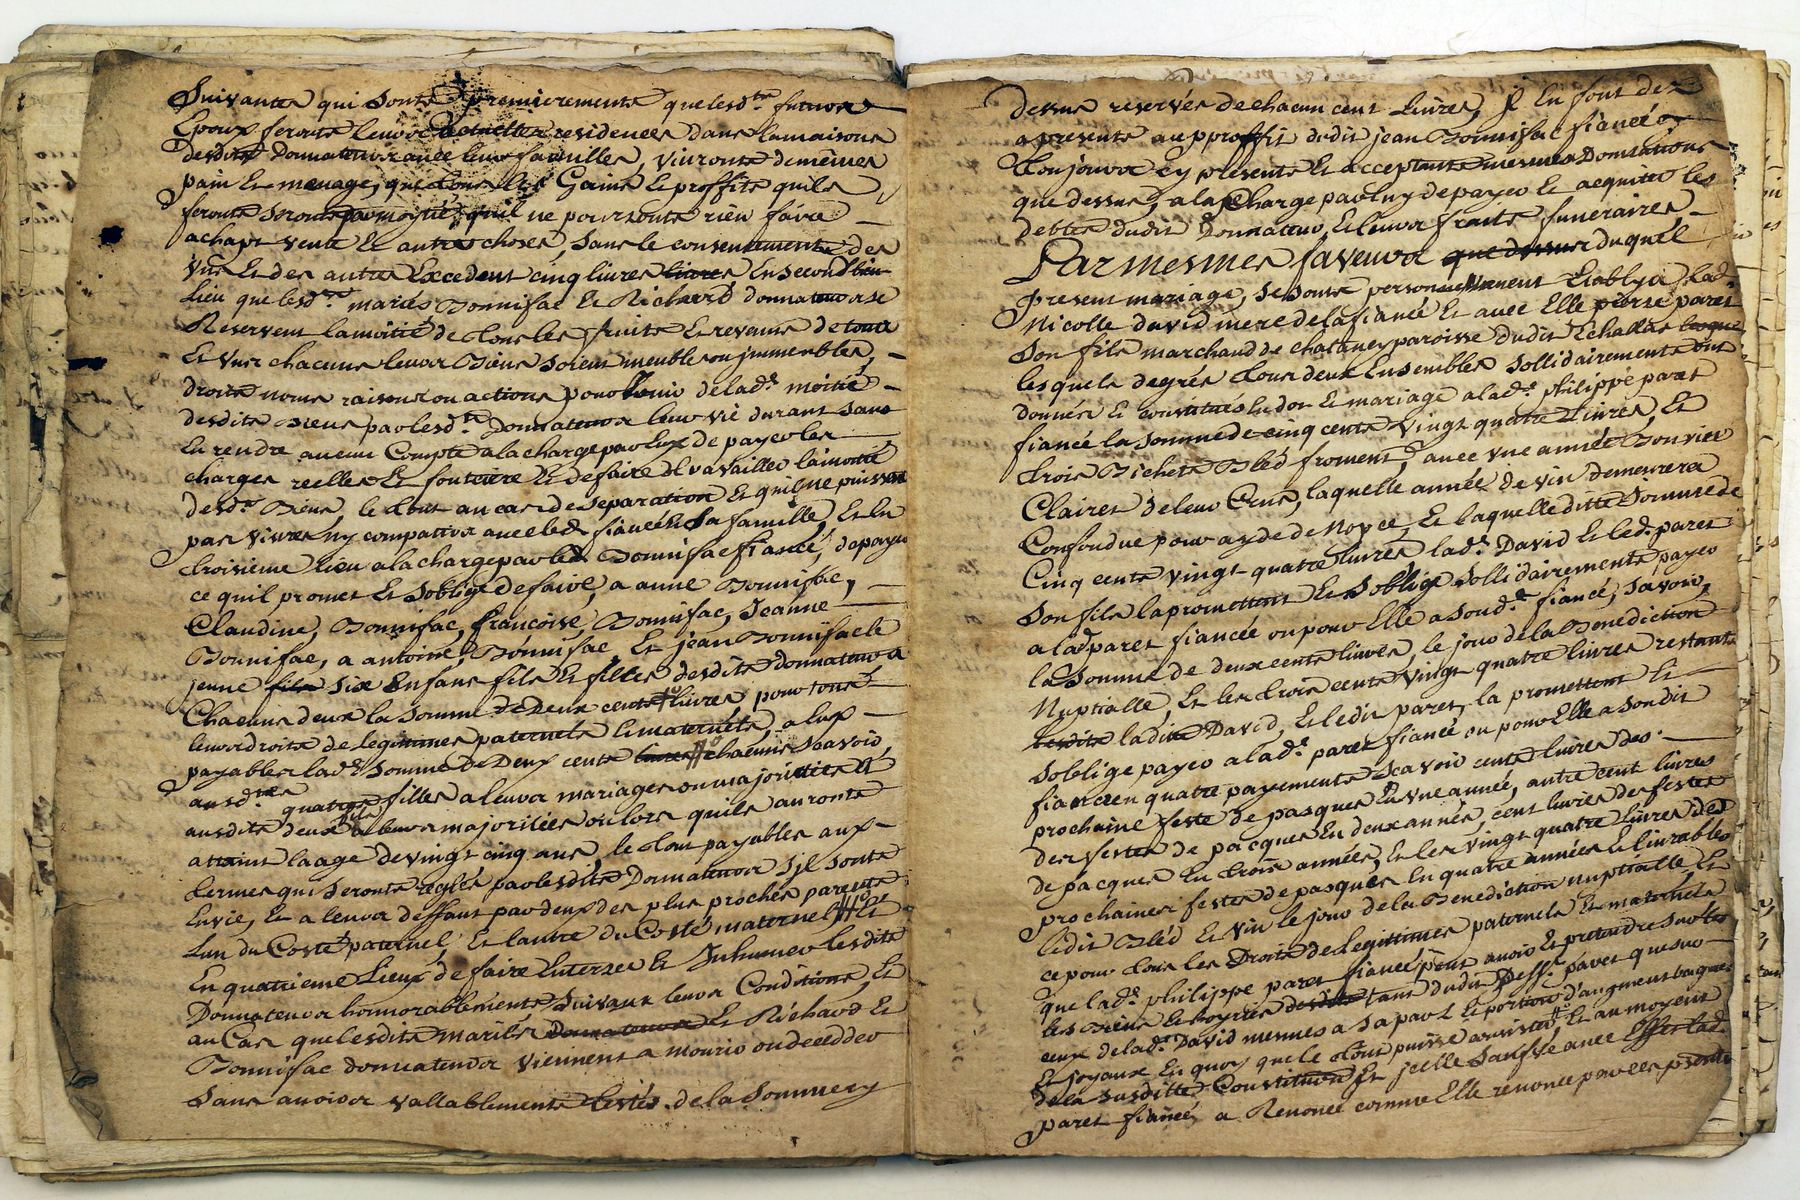 Suivantes qui sonts premierements que lesd.ts futurs
Epoux feronts leurs residences dans la maisons
desdits Donnateurs avec leurs familles, vivronts de mêmes
pain Et menage, que tous les Gains Et proffits quils
feronts par moytié, quil ne pourronts rien faire
achapt vente Et autres choses, sans le consentements des
uns Et des autres Excedent cinq livres En second
Lieu que lesd.ts mariés Bonnifac Et Richard donnateurs se
Reservent la moitié de tous les fruits Et revenus de tout
Et uns chacuns leurs Biens soient meubles ou jmmeubles,
droits noms raisons ou actions pour jouir de lad.e moitié
desdits Biens par lesd.ts Donnateurs leur vie durant sans
En rendre aucun Compte a la charge par Eux de payer les
charges reelles Et fonciere Et de faire travailler la moitié
desd.ts Biens, le tout au cas de separation Et quil ne puissent
pas vivres ny compattir avec led. fiancé Et sa famille, Et En
troisieme Lieu a la charge par led. Bonnifac fiancé, de payer
ce quil promet Et soblige de faire, a anne Bonnifac,
Claudine, Bonnifac, françoise, Bonnifac, Jeanne
Bonnifac, a antoine, Bonnifac Et jean Bonnifac le
jeune six Enfans fils Et filles desdits donnateurs a
Chacuns deux la somme de Deux cents livres, pour tous
leurs droits de legitimes paternels Et maternels, a Eux
payables lad.e somme de Deux cents chacuns scavoir,
ausd.tes quatres filles a leurs mariages ou majoritées Et
ausdits deux fils a leurs majoritées ou lors quils auronts
attaint laage de vingt cinq ans, le tout payables aux
termes qui seronts reglés par lesdits Donnateurs sjl sonts
En vie, Et a leurs deffaut par deux des plus proches parents
Lun du Costé paternel, Et lautre du Costé maternel, Et
En quatrieme Lieux de faire Enterrer Et Inhumer lesdits
Donnateurs honnorablements suivant leurs Conditions, Et
au Cas que lesdits mariés Donnateurs Et Richard Et
Bonnifac donnateurs viennent a mourir ou decedder
Sans avoirs vallablements testés de la somme y
dessus reservés de chacun cent livres, Jl En font dez
apresents au proffit dudit jean Bonnifac fiancé
toujours cy presents Et acceptants mesmes Donnations
que dessus, a la Charge par luy de payer Et acquiter les
debtes dudit Donnateur, Et leurs fraits funeraires
Par mesmes faveurs que dessus duquel
present mariage, se sonts personnellement Etablys lad.e
Nicolle david mere de la fiancé Et avec Elle pierre paret
Son fils marchand de chataney paroisse dudit Echallas
lesquels degrés tous deux Ensembles sollidairements ont
donnés Et constitués En don Et mariage a lad.e philippe paret
fiancée la somme de cinq cents vingt quatre Livres, Et
trois Bichets Bled froment, avec une année Bon vin
Clairet de leur Crus, laquelle année de vin demeurera
Confondue pour ayde de Nopce, Et laquelle ditte somme de
Cinq cents vingt quatre livres lad.e David Et led. paret
Son fils la promettent Et soblige sollidairements payer
a lad. paret fiancée ou pour Elle a soud.t fiancé, scavoir,
la somme de deux cents livres, le jour de la Benediction
Nuptialle Et les trois cents vingt quatre livres restants
ladite David, Et ledit paret, la promettent Et
soblige payer a lad.e paret fiancé ou pour Elle a soudit
fiancé en quatre payements scavoir cents livres des
prochaine feste de pasques En une année, autre cent livres
des festes de pacques En deux année, cent livres des festes
de pacques En trois années, Et les vingt quatre livres des
prochaines festes de pasques En quatre années Et livrables
ledit Bléd Et vin le jour de la Benediction nuptialle, Et
ce pour tous les Droits de Legittimes paternels Et maternels
que lad.e philippe paret fiancé peut avoir Et pretendre sur les
les Biens Et hoyries tant dudit Deff.t paret que sur
ceux de lad.e David mesmes a sa part Et portion d'augment bagues
Et joyaux En quoy que le tout puisse consister, Et au moyent
de la susditte Constitution Et jcelle sauffve avec Effet lad.
paret fiancé a Renoncé comme Elle renonce par ces presents